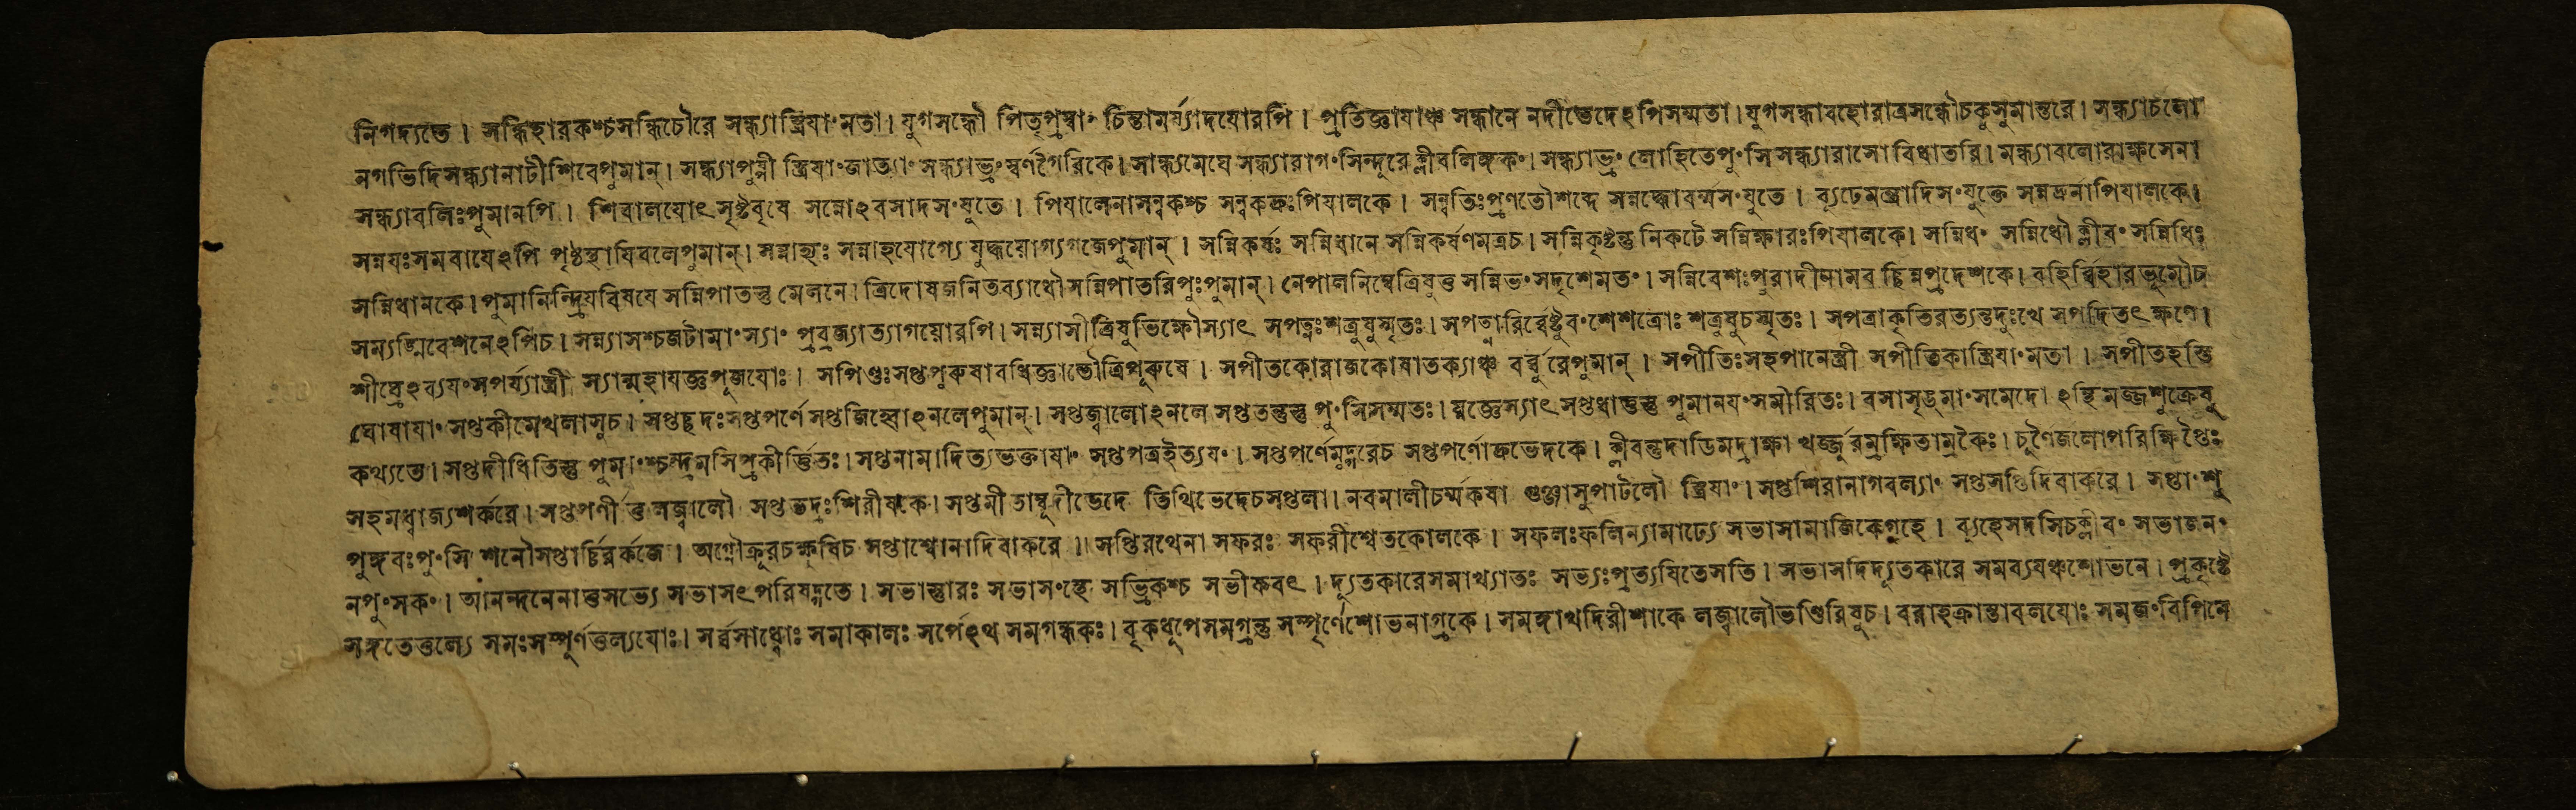 নিগদ্যতে । সন্ধিহারকশ্চসন্ধিচৌরে সন্ধ্যাস্ত্রিযাংমতা । যুগসন্ধৌ পিতৃপ্রস্বাং চিন্তামর্য্যাদযোরপি । প্রতিজ্ঞাযাঞ্চ সন্ধানে নদীভেদেঽপিসম্মতা । যুগসন্ধাবহোরাত্রসন্ধৌচকুসুমান্তরে । সন্ধ্যাচলো
নগভিদিসন্ধ্যানাটীশিবেপুমান্ । সন্ধ্যাপুষ্পী স্ত্রিযাংজাত্যাং সন্ধ্যাভ্রংস্বর্ণগৈরিকে । সান্ধ্যমেঘে সন্ধ্যারাগংসিন্দূরেক্লীবলিঙ্গকং । সন্ধ্যাভ্রং লোহিতেপুংসি সন্ধ্যারাসো বিধাতরি । সন্ধ্যাবলোরাক্ষসেনা
সন্ধ্যাবলিঃপুমানপি । শিবালযোৎসৃষ্টবৃষে সন্নোঽবসাদসংযুতে । পিযালেনাসন্নকশ্চ সন্নকদ্রুঃপিযালকে । সন্নতিঃপ্রণতৌশব্দে সন্নদ্ধোবর্ম্মসংযুতে । ব্যূঢেমন্ত্রাদিসংযুক্তে সন্নদ্রুর্নাপিযালকে ।
সন্নযঃসমবাযেঽপি পৃষ্ঠস্থাযিবলেপুমান্ । সন্নাহ্যঃ সন্নাহযোগ্যে যুদ্ধযোগ্যগজেপুমান্ । সন্নিকর্ষঃ সন্নিধানে সন্নিকর্ষণমত্রচ । সন্নিকৃষ্টন্তু নিকটে সন্নিক্ষারঃপিযালকে । সন্নিধং সন্নিধৌক্লীবং সন্নিধিঃ
সন্নিধানকে । পুমানিন্দ্রিযবিষযে সন্নিপাতস্তু মেলনে । ত্রিদোষজনিতব্যাধৌ সন্নিপাতরিপুঃপুমান্ । নেপালনিম্বেত্রিষুত্ত সন্নিভংসদৃশেমতং । সন্নিবেশঃপুরাদীনামবচ্ছিন্নপ্রদেশকে । বহির্ব্বিহারভূমৌচ
সম্যঙ্নিবেশনেঽপিচ । সন্ন্যাসশ্চজটামাংস্যাং প্রব্রজ্যাত্যাগযোরপি । সন্ন্যাসীত্রিষুভিক্ষৌস্যাৎ সপত্নঃশত্রুষুস্মৃতঃ । শত্রুষুচস্মৃতঃ । সপত্রাকৃতিরত্যন্তদুঃখে সপদিতৎক্ষণে ।
শীঘ্রেঽব্যযংসপর্য্যাস্ত্রী স্যান্মহাযজ্ঞপূজযোঃ । সপিণ্ডঃসপ্তপুরুষাবধিজ্ঞাতৌত্রিপূরুষে । সপীতকোরাজকোষাতক্যাঞ্চ বর্ব্বুরেপুমান্ । সপীতিঃসহপানেস্ত্রী সপীতিকাস্ত্রিযাংমতা । সপীতহস্তি
ঘোষাযাং সপ্তকীমেখলাসুচ । সপ্তচ্ছদঃসপ্তপর্ণে সপ্তজিহ্বোঽনলেপুমান্ । সপ্তজ্বালোঽনলে সপ্ততন্তুস্তু পুংসিসম্মতঃ । যজ্ঞেস্যাৎ সপ্তধাতুস্তু পুমানযংসমীরিতঃ । বসাসৃঙ্মাংসমেদোঽস্থি মজ্জশুক্রেষু
কথ্যতে । সপ্তদীধিতিস্তু পুমাংশ্চন্দ্রমসিপ্রকীর্ত্তিতঃ । সপ্তনামাদিত্যভক্তাযাং সপ্তপত্রইত্যযং । সপ্তপর্ণেমুদ্গরেচ সপ্তপর্ণোদ্রুভেদকে । ক্লীবন্তুদাডিমদ্রাক্ষা খর্জ্জূর
সহমধ্বাজ্যশর্করে । সপ্তপর্ণী তু লজ্জালৌ সপ্তভদ্রঃশিরীষকে । তিথিভেদেচসপ্তলা । নবমালীচর্ম্মকষা গুঞ্জাসুপাটলৌ স্ত্রিযাং । সপ্তশিরানাগবল্যাং সপ্তসপ্তিদিবাকরে । সপ্তাংশু
পুঙ্গবঃপুংসি শনৌসপ্তার্চ্চিরর্কজে । অগ্নৌক্রূরচক্ষুষিচ সপ্তাশ্বোনাদিবাকরে ॥ সপ্তিরথেনা সফরঃ সফরীশ্বেতকোলকে । সফলঃফলিন্যামাঢ্যে সভাসামাজিকেগৃহে । ব্যূহেসদসিচক্লীবং সভাজনং
নপুংসকং । আনন্দনেনাত্তসভ্যে সভাসৎপরিষদ্গতে । সভাস্তারঃ সভাসংস্থে সভিকশ্চ সভীকবৎ । দ্যূতকারেসমাখ্যাতঃ সভ্যঃপ্রত্যযিতেসতি । সভাসদিদ্যূতকারে সমব্যযঞ্চশোভনে । প্রকৃষ্টে
সঙ্গতেতুল্যে সমঃসম্পূর্ণতুল্যযোঃ । সর্ব্বসাধ্বোঃ সমাকালঃ সর্পেঽথ সমগন্ধকঃ । বৃকধূপেসমগ্রন্তু সম্পূর্ণেশোভনাগ্রকে । সমঙ্গাখদিরীশাকে লজ্জালৌভণ্ডিরিষুচ । বরাহক্রান্তাবলযোঃ সমজংবিপিনে